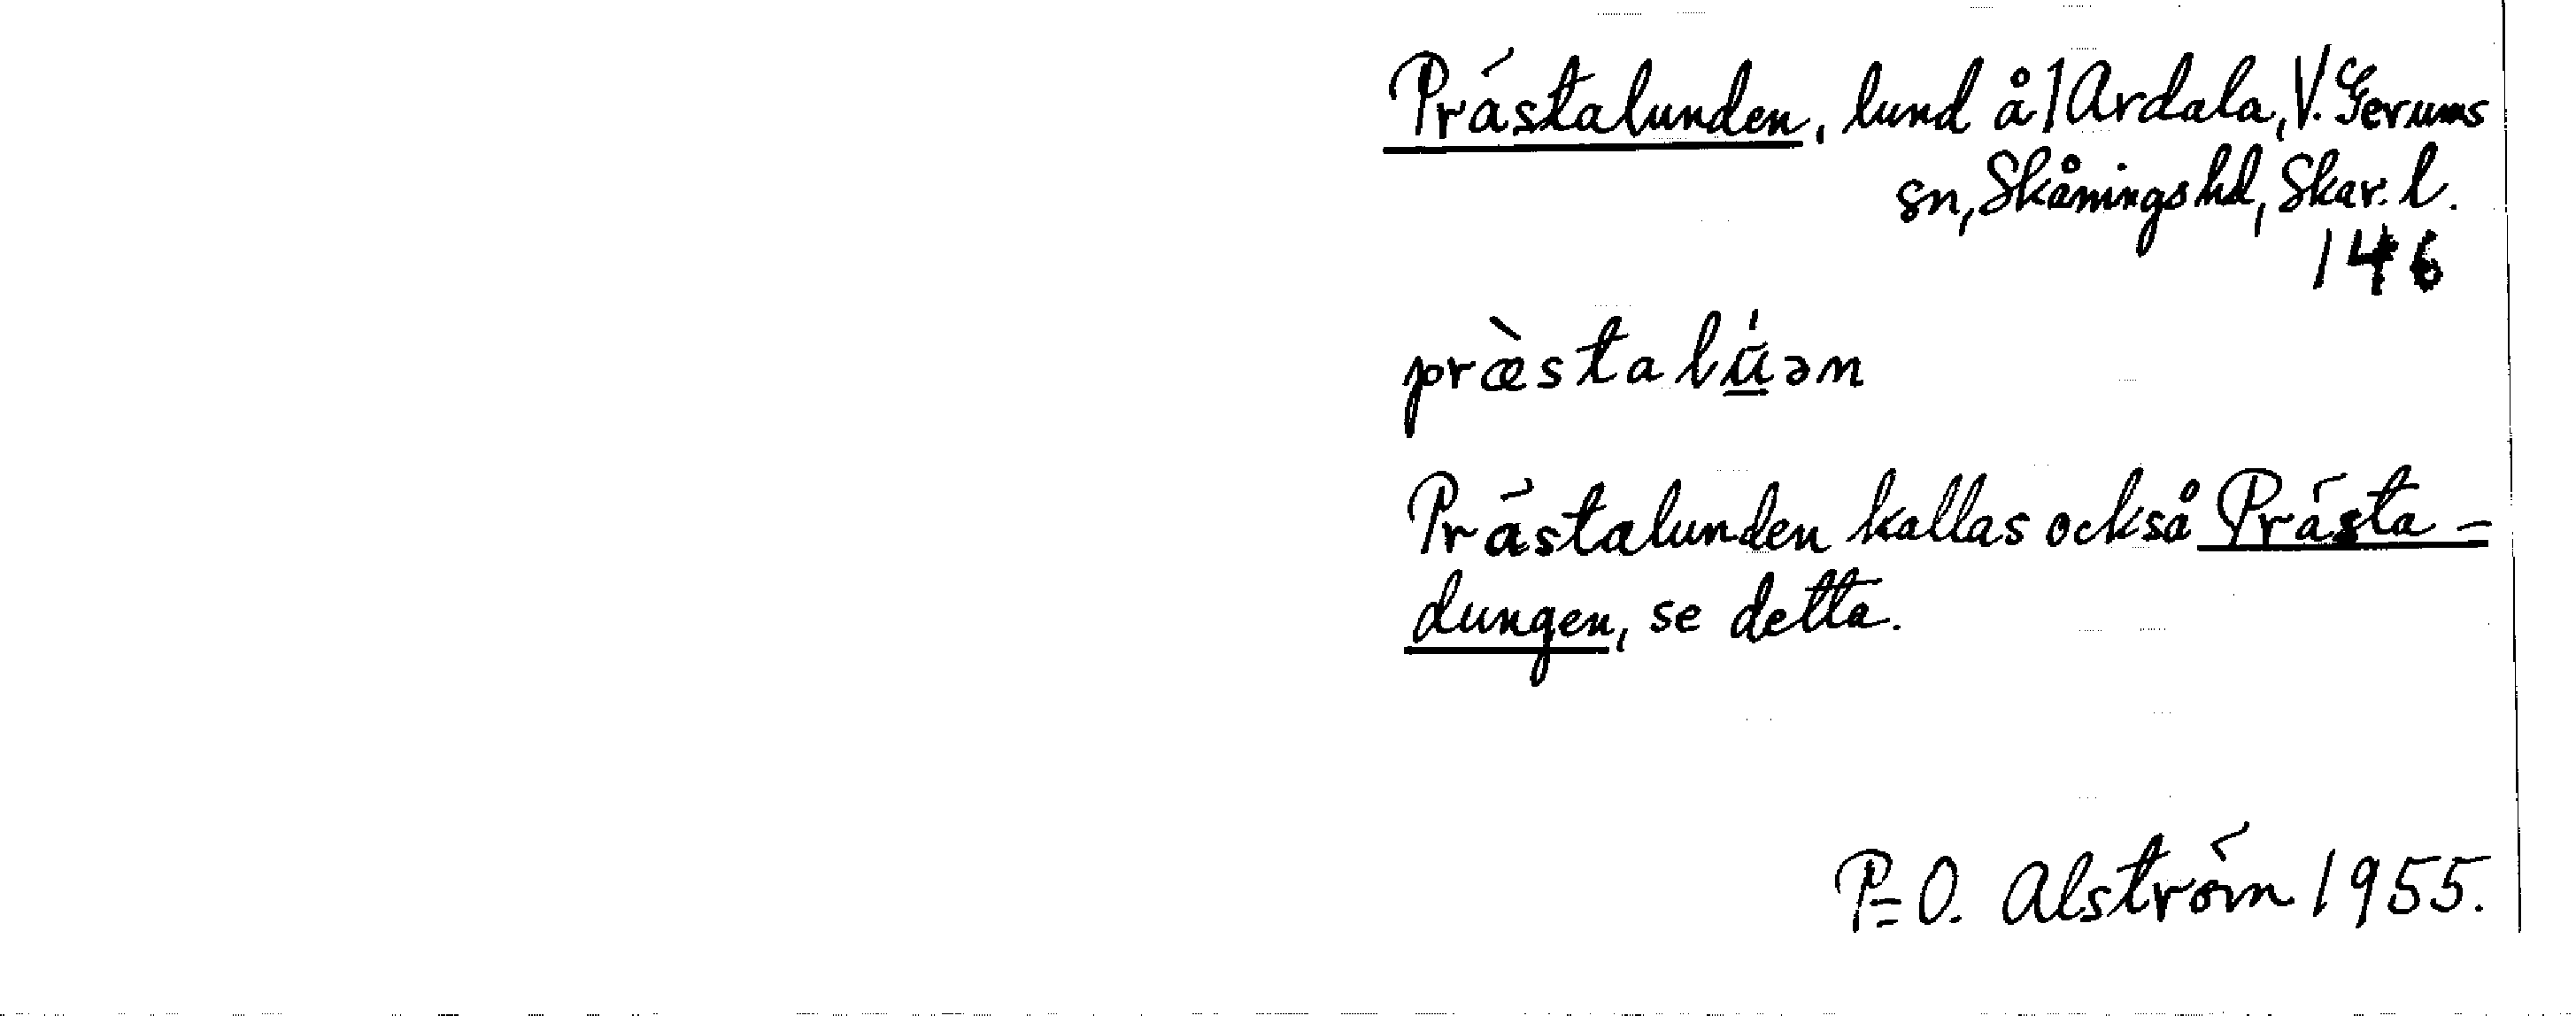 Prästalunden, lund å 1 Ardala, V. Gerums
sn, Skånings hd, Skar. l.
146
præ̀stalu̲̍ən
Prästalunden kallas också Prästa-
dungen, se detta.
P-O. Alström 1955.